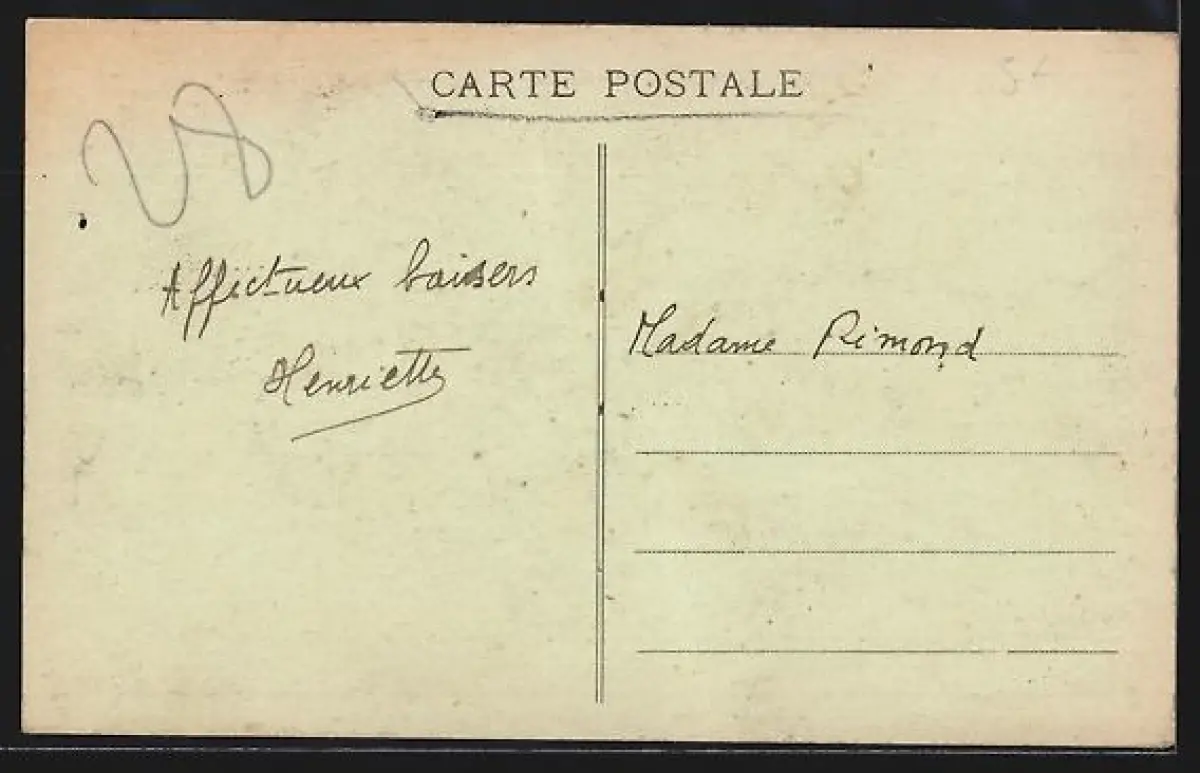 CARTE POSTALE
Affectueux baisers
Henriette
Madame Rimond